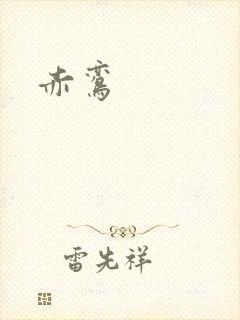 赤鸾
雷先祥